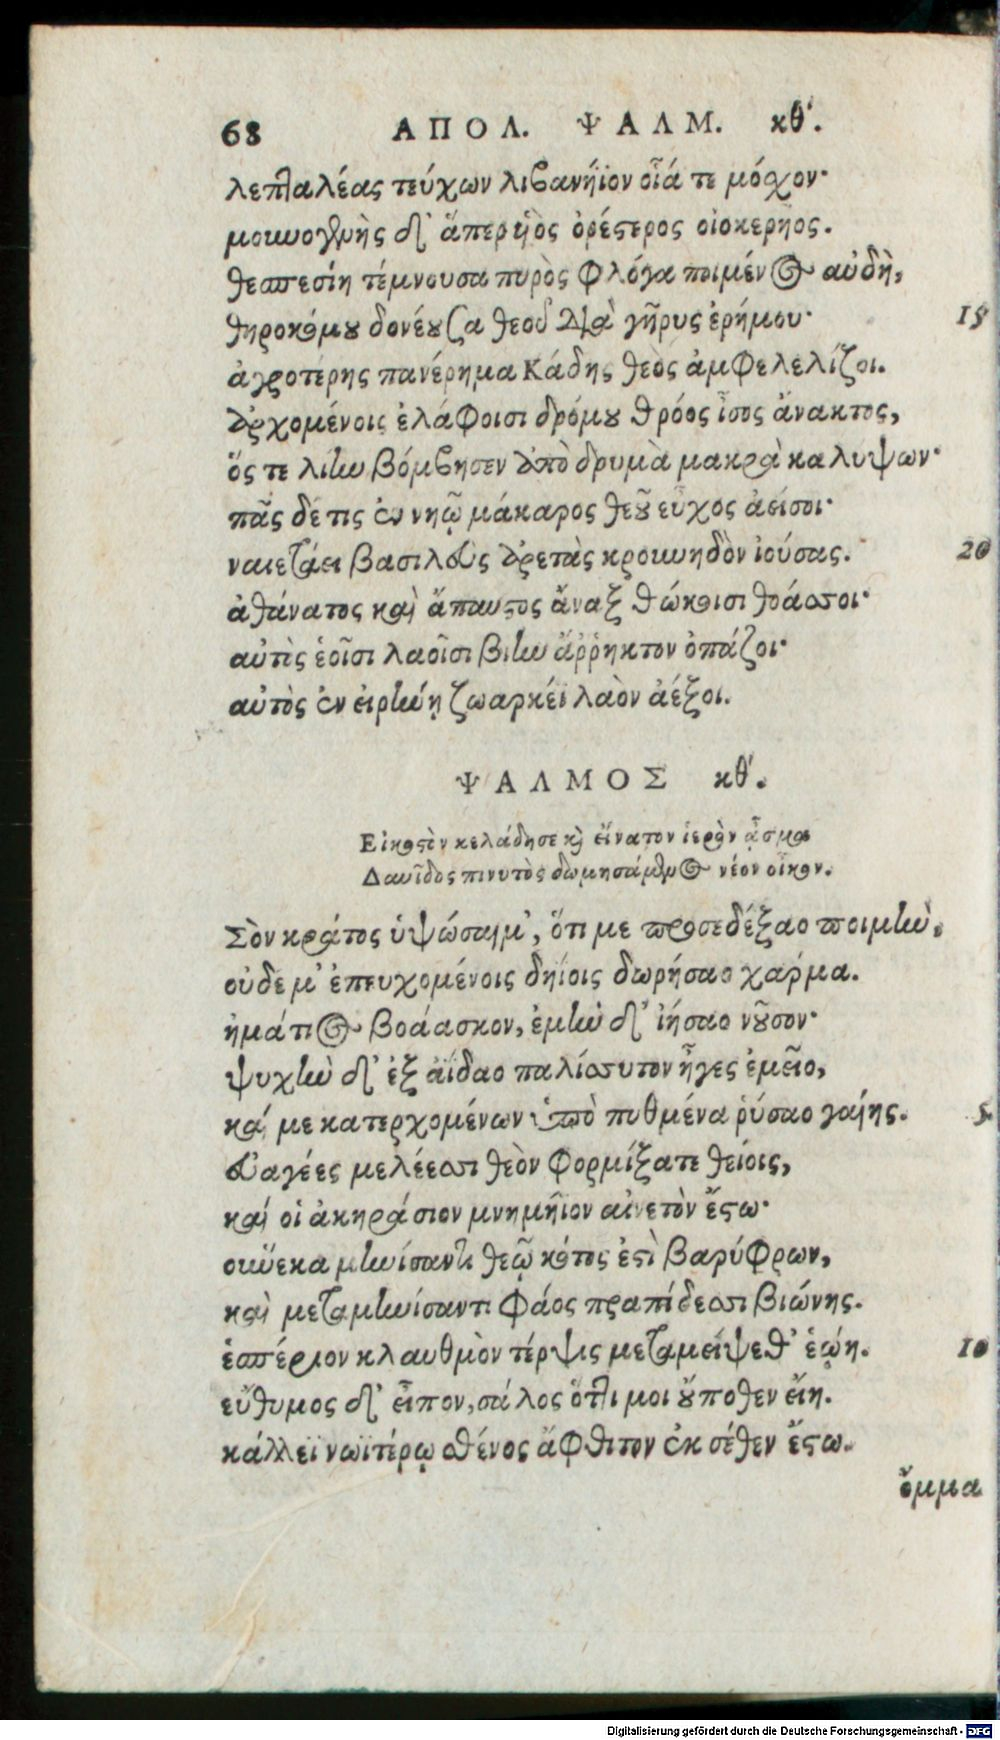 68 ΑΠΟΛ. ΨΑΛΜ. κθʹ.
λεπταλέας τεύχων λιβανήϊον οἷά τε μόσχον·
μουνογενὴς δ' ἅπερ υἱὸς ὀρέστερος οἰοκερῆος.
θεσπεσίη τέμνουσα πυρὸς φλόγα ποιμένος αὐδὴ,
θηροκόμου δονέουσα θεοῦ διὰ γῆρυς ἐρήμου· 15
ἀγροτέρης πανέρημα Κάδης θεὸς ἀμφελελίζοι.
ἀρχομένοις ἐλάφοισι δρόμου θρόος ἶσος ἄνακτος,
ὅς τε λίην βόμβησεν ἀπὸ δρυμὰ μακρὰ καλύψων·
πᾶς δέ τις ἐν νηῷ μάκαρος θεοῦ εὖχος ἀείσοι·
ναιετάει βασιλεὺς ἀρετὰς κρουνηδὸν ἰούσας. 20
ἀθάνατος καὶ ἄπαυστος ἄναξ θώκοισι θοάσσοι·
αὐτὶς ἑοῖσι λαοῖσι βίην ἄῤῥηκτον ὀπάζοι·
αὐτὸς ἐν εἰρήνῃ ζωαρκέϊ λαὸν ἀέξοι.
ΨΑΛΜΟΣ κθʹ.
Εἰκοστὸν κελάδησε καὶ εἴνατον ἱερὸν ᾆσμα
Δαυῖδος πινυτὸς δωμησάμενος νέον οἶκον.
Σὸν κράτος ὑψώσαιμ', ὅτι με προσεδέξαο ποιμὴν,
οὐδέ μ' ἐπευχομένοις δηΐοις δωρήσαο χάρμα.
ἠμάτιος βοάασκον, ἐμὴν δ' ἰήσαο νοῦσον·
ψυχὴν δ' ἐξ ἀΐδαο παλίσσυτον ἦγες ἐμεῖο,
καί με κατερχομένων ὑπὸ πυθμένα ῥύσαο γαίης. 5
εὐαγέες μελέεσσι θεὸν φορμίξατε θείοις,
καί οἱ ἀκηράσιον μνημήϊον αἰνετὸν ἔστω·
οὕνεκα μηνίσαντι θεῷ κότος ἐστὶ βαρύφρων,
καὶ μεταμηνίσαντι φάος πραπίδεσσι βιώνης.
ἑσπέριον κλαυθμὸν τέρψις μεταμείψεθ' ἑῴη. 10
εὔθυμος δ' εἶπον, σάλος ὅττι μοι οὔποθεν εἴη.
κάλλεϊ νωϊτέρῳ σθένος ἄφθιτον ἐκ σέθεν ἔστω.
ὄμμα
Digitalisierung gefördert durch die Deutsche Forschungsgemeinschaft - DFG